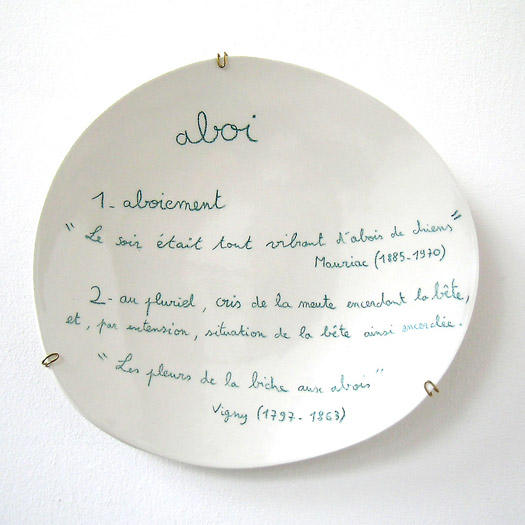 aboi
1- aboiement
" Le soir était tout vibrant d'abois de chiens "
Mauriac (1885-1970)
2- au pluriel, cris de la meute encerclant la bête,
et, par extension, situation de la bête ainsi encerclée.
" Les pleurs de la biche aux abois "
Vigny (1797-1863)